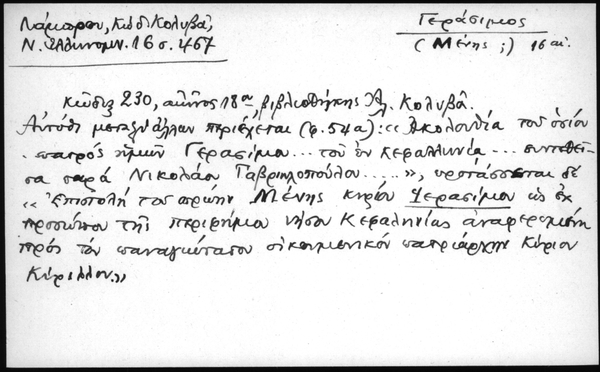 Λάμπρου, Κώδ. Κολυβᾶ,
Ν. Ἑλληνομν. 16 σ. 467
Γεράσιμος
(Μένης;) 16 αἰ.
Κῶδιξ 230, αἰῶνος 18ου, βιβλιοθήκης Ἀλ. Κολυβᾶ.
Αὐτόθι μεταξὺ ἄλλων περιέχεται (φ. 54α): «Ἀκολουθία τοῦ ὁσίου
πατρὸς ἡμῶν Γερασίμου... τοῦ ἐν Κεφαλληνίᾳ... συντεθεῖ-
σα παρὰ Νικολάου Γαβριηλοπούλου.....», προτάσσεται δὲ
«Ἐπιστολὴ τοῦ πρώην Μένης κυρίου Γερασίμου ὡς ἐκ
προσώπου τῆς περιφήμου νήσου Κεφαληνίας ἀναφερομένη
πρὸς τὸν παναγιώτατον οἰκουμενικὸν πατριάρχην Κύριον
Κύριλλον.»